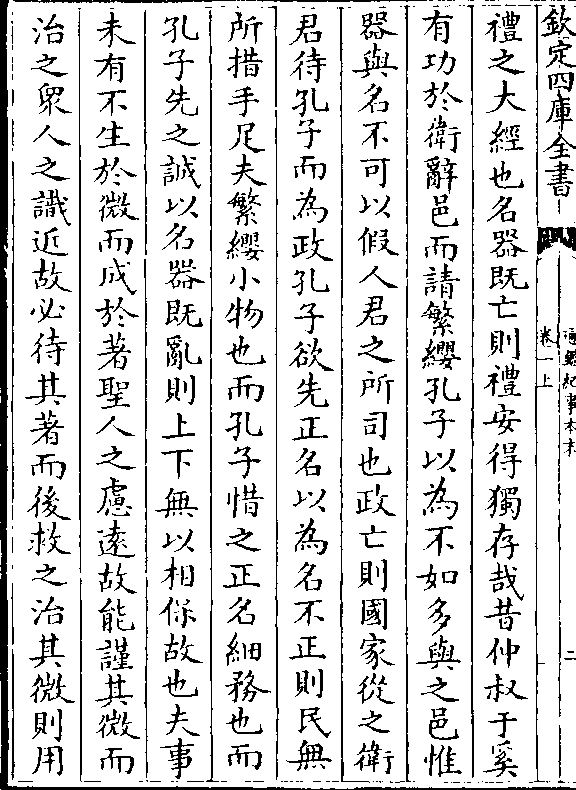 欽定四庫全書
通鑑紀事本末
卷一上
二
禮之大經也名器既亡則禮安得獨存哉昔仲叔于奚
有功於衛辭邑而請繁纓孔子以為不如多與之邑惟
器與名不可以假人君之所司也政亡則國家從之衛
君待孔子而為政孔子欲先正名以為名不正則民無
所措手足夫繁纓小物也而孔子惜之正名細務也而
孔子先之誠以名器既亂則上下無以相保故也夫事
未有不生於微而成於著聖人之慮遠故能謹其微而
治之衆人之識近故必待其著而後救之治其微則用